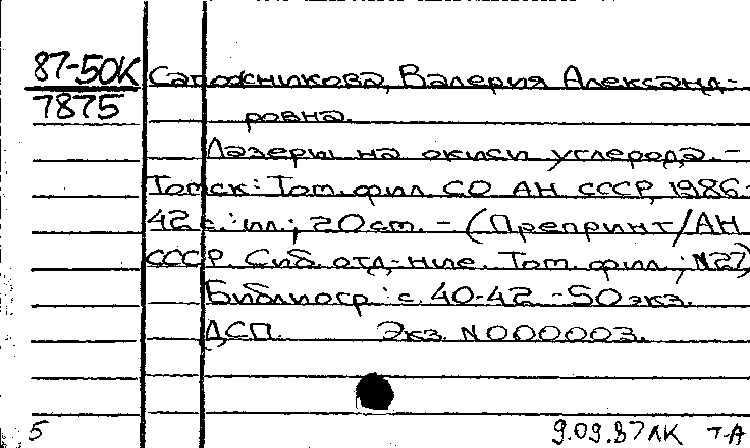 87-50К Сапожникова, Валерия Александ-
7875 ровна.
Лазеры на окиси углерода. –
Томск: Том. фил. СО АН СССР, 1986.-
42 с.: ил.; 20 см. – (Препринт/АН
СССР. Сиб. отд-ние. Том. фил.; N27)
Библиогр.: с. 40-42 - 50 экз.
ДСП. Экз. N000003.
5 9.09.87 ЛК т-А